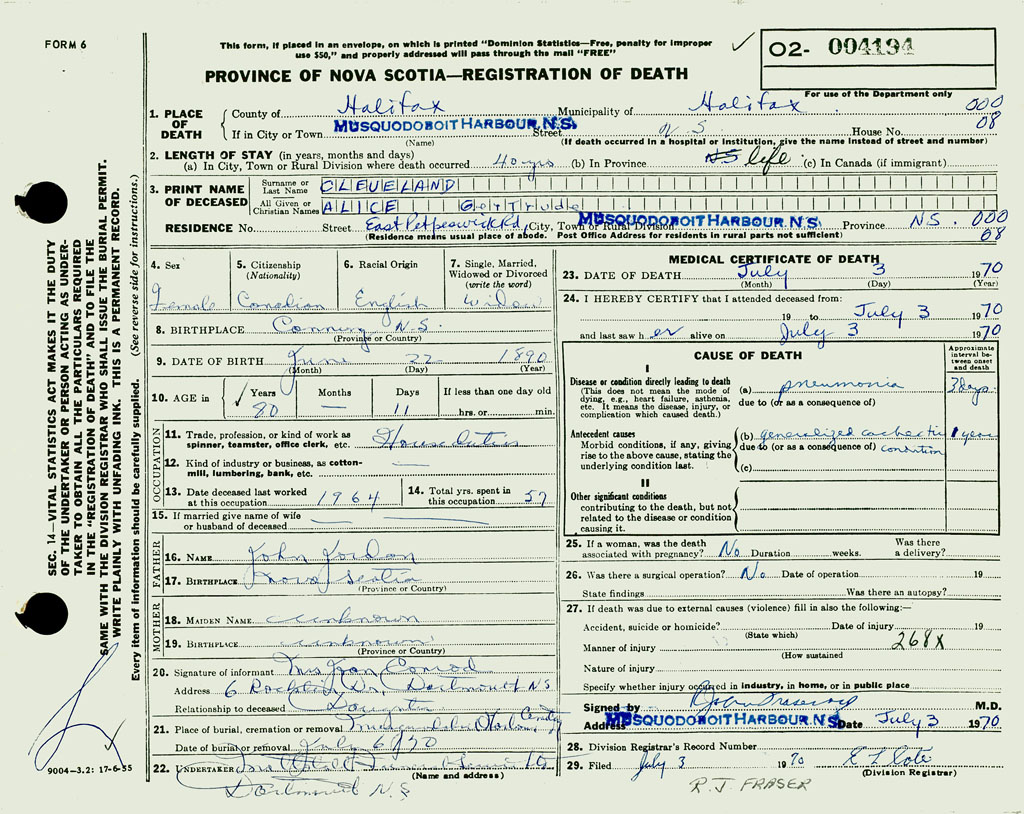 FORM 6
This form, if placed in an envelope, on which is printed "Dominion Statistics—Free, penalty for improper
use $50," and properly addressed will pass through the mail "FREE"
O2- 004194
PROVINCE OF NOVA SCOTIA—REGISTRATION OF DEATH
For use of the Department only
1. PLACE OF DEATH
County of Halifax Municipality of Halifax 000
If in City or Town MUSQUODOBOIT HARBOUR, N.S. Street N S House No. 08
(Name) (If death occurred in a hospital or institution, give the name instead of street and number)
2. LENGTH OF STAY (in years, months and days)
(a) In City, Town or Rural Division where death occurred 40 yrs (b) In Province NS life (c) In Canada (if immigrant)
3. PRINT NAME OF DECEASED
Surname or Last Name CLEVELAND
All Given or Christian Names ALICE GerTrude
RESIDENCE No. Street East Petpeswick Rd, City, Town or Rural Division MUSQUODOBOIT HARBOUR, N.S. Province NS. 000
(Residence means usual place of abode. Post Office Address for residents in rural parts not sufficient) 08
4. Sex Female
5. Citizenship (Nationality) Canadian
6. Racial Origin English
7. Single, Married, Widowed or Divorced (write the word) Widow
8. BIRTHPLACE N.S.
(Province or Country)
9. DATE OF BIRTH June 22 1890
(Month) (Day) (Year)
10. AGE in Years 80 Months — Days 11 If less than one day old hrs. or min.
OCCUPATION
11. Trade, profession, or kind of work as spinner, teamster, office clerk, etc. Houseduties
12. Kind of industry or business, as cotton-mill, lumbering, bank, etc. —
13. Date deceased last worked at this occupation 1964
14. Total yrs. spent in this occupation 57
15. If married give name of wife or husband of deceased — —
FATHER
16. NAME John Jordan
17. BIRTHPLACE Nova Scotia
(Province or Country)
MOTHER
18. MAIDEN NAME unknown
19. BIRTHPLACE unknown
(Province or Country)
20. Signature of informant Mrs Jean Conrod
Address 6 Dr. Dartmouth NS
Relationship to deceased Daughter
21. Place of burial, cremation or removal
Date of burial or removal July 6 1970
22. UNDERTAKER
(Name and address)
Dartmouth N.S
MEDICAL CERTIFICATE OF DEATH
23. DATE OF DEATH July 3 1970
(Month) (Day) (Year)
24. I HEREBY CERTIFY that I attended deceased from:
19 to July 3 1970
and last saw her alive on July 3 1970
CAUSE OF DEATH
Approximate interval between onset and death
I
Disease or condition directly leading to death
(This does not mean the mode of dying, e.g., heart failure, asthenia, etc. It means the disease, injury, or complication which caused death.)
(a) pneumonia 3 days
due to (or as a consequence of)
Antecedent causes
Morbid conditions, if any, giving rise to the above cause, stating the underlying condition last.
(b) generalized 1 year
due to (or as a consequence of) condition
(c)
II
Other significant conditions
contributing to the death, but not related to the disease or condition causing it.
25. If a woman, was the death associated with pregnancy? No Duration weeks. Was there a delivery?
26. Was there a surgical operation? No Date of operation 19
State findings Was there an autopsy?
27. If death was due to external causes (violence) fill in also the following:—
Accident, suicide or homicide? Date of injury 19
(State which)
Manner of injury 268X
(How sustained
Nature of injury
Specify whether injury occurred in industry, in home, or in public place
Signed by M.D.
Address MUSQUODOBOIT HARBOUR, N.S. Date July 3 1970
28. Division Registrar's Record Number
29. Filed July 3 1970
(Division Registrar)
R.J. FRASER
SEC. 14—VITAL STATISTICS ACT MAKES IT THE DUTY
OF THE UNDERTAKER OR PERSON ACTING AS UNDER-
TAKER TO OBTAIN ALL THE PARTICULARS REQUIRED
IN THE "REGISTRATION OF DEATH" AND TO FILE THE
SAME WITH THE DIVISION REGISTRAR WHO SHALL ISSUE THE BURIAL PERMIT.
WRITE PLAINLY WITH UNFADING INK. THIS IS A PERMANENT RECORD.
Every item of information should be carefully supplied. (See reverse side for instructions.)
9004-3.2: 17-6-55